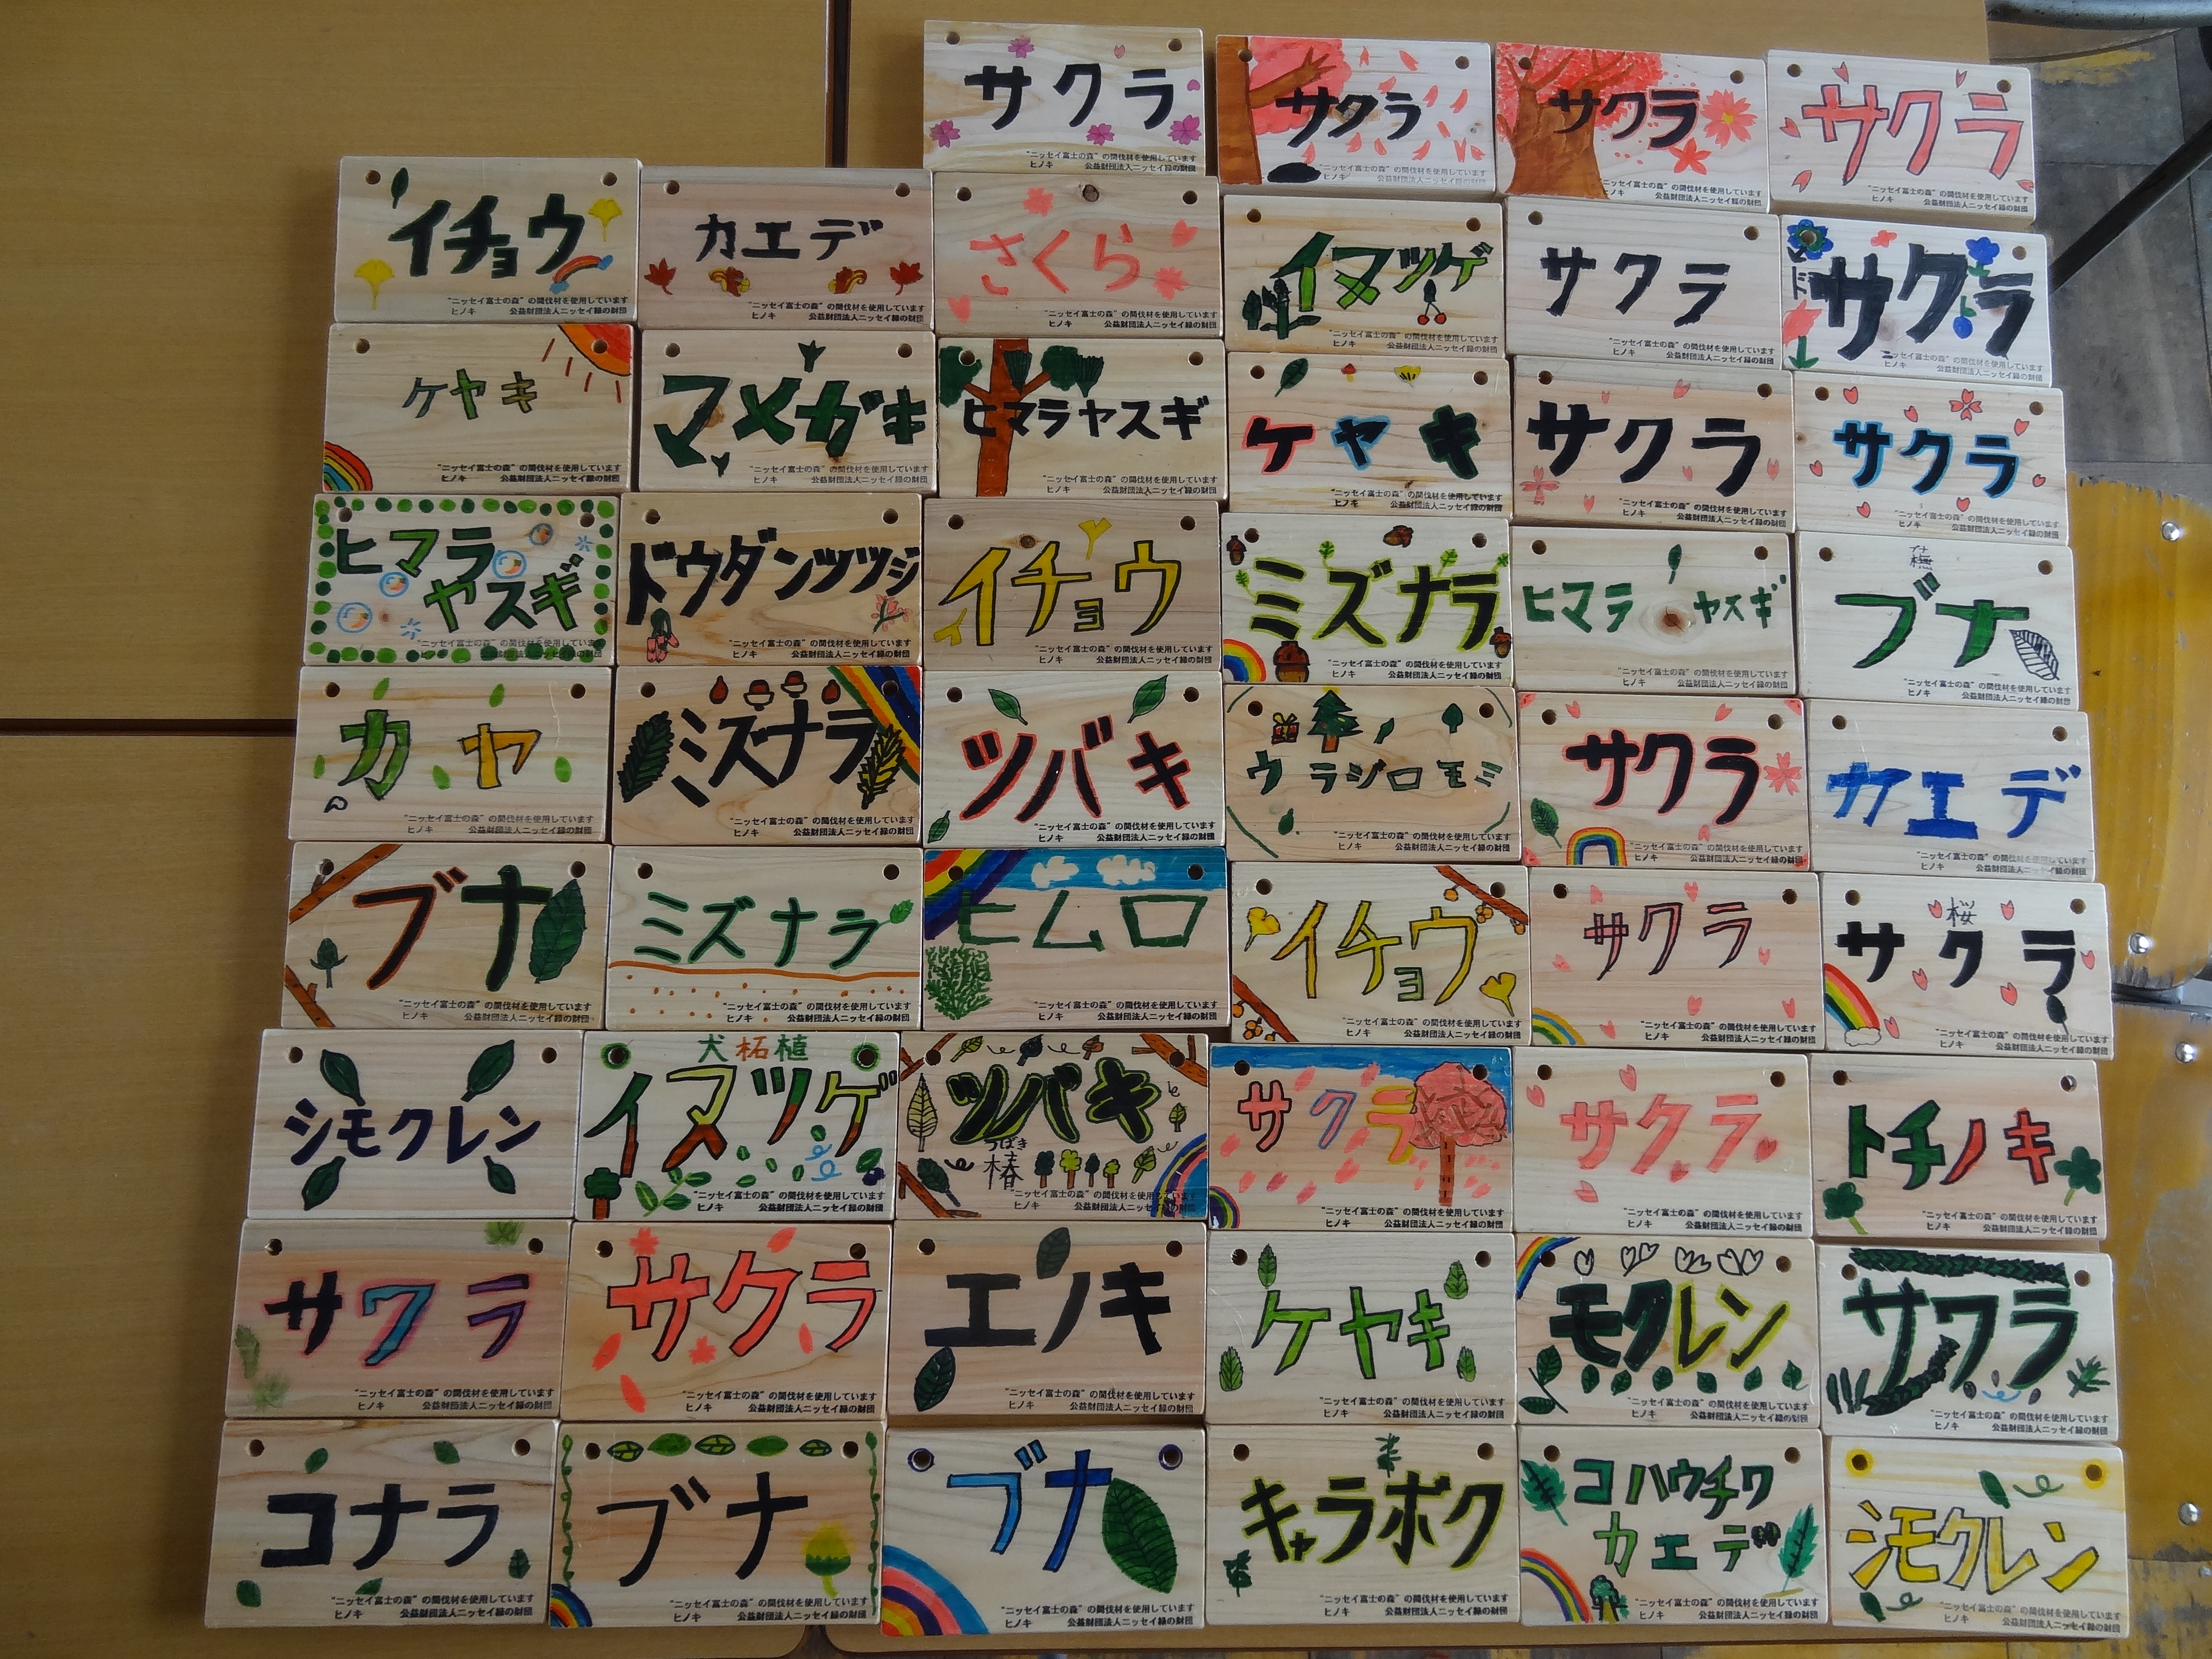 サクラ
“ニッセイ富士の森”の間伐材を使用しています
ヒノキ 公益財団法人ニッセイ緑の財団
サクラ
“ニッセイ富士の森”の間伐材を使用しています
ヒノキ 公益財団法人ニッセイ緑の財団
サクラ
“ニッセイ富士の森”の間伐材を使用しています
ヒノキ 公益財団法人ニッセイ緑の財団
サクラ
“ニッセイ富士の森”の間伐材を使用しています
ヒノキ 公益財団法人ニッセイ緑の財団
イチョウ
“ニッセイ富士の森”の間伐材を使用しています
ヒノキ 公益財団法人ニッセイ緑の財団
カエデ
“ニッセイ富士の森”の間伐材を使用しています
ヒノキ 公益財団法人ニッセイ緑の財団
さくら
“ニッセイ富士の森”の間伐材を使用しています
ヒノキ 公益財団法人ニッセイ緑の財団
イヌツゲ
“ニッセイ富士の森”の間伐材を使用しています
ヒノキ 公益財団法人ニッセイ緑の財団
サクラ
“ニッセイ富士の森”の間伐材を使用しています
ヒノキ 公益財団法人ニッセイ緑の財団
サクラ
ニッセイ富士の森”の間伐材を使用しています
ヒノキ 公益財団法人ニッセイ緑の財団
ケヤキ
“ニッセイ富士の森”の間伐材を使用しています
ヒノキ 公益財団法人ニッセイ緑の財団
マメガキ
“ニッセイ富士の森”の間伐材を使用しています
ヒノキ 公益財団法人ニッセイ緑の財団
ヒマラヤスギ
“ニッセイ富士の森”の間伐材を使用しています
ヒノキ 公益財団法人ニッセイ緑の財団
ケヤキ
“ニッセイ富士の森”の間伐材を使用しています
ヒノキ 公益財団法人ニッセイ緑の財団
サクラ
“ニッセイ富士の森”の間伐材を使用しています
ヒノキ 公益財団法人ニッセイ緑の財団
サクラ
“ニッセイ富士の森”の間伐材を使用しています
ヒノキ 公益財団法人ニッセイ緑の財団
ヒマラ
ヤスギ
“ニッセイ富士の森”の間伐材を使用しています
ヒノキ 公益財団法人ニッセイ緑の財団
ドウダンツツジ
“ニッセイ富士の森”の間伐材を使用しています
ヒノキ 公益財団法人ニッセイ緑の財団
イチョウ
“ニッセイ富士の森”の間伐材を使用しています
ヒノキ 公益財団法人ニッセイ緑の財団
ミズナラ
“ニッセイ富士の森”の間伐材を使用しています
ヒノキ 公益財団法人ニッセイ緑の財団
ヒマラヤスギ
“ニッセイ富士の森”の間伐材を使用しています
ヒノキ 公益財団法人ニッセイ緑の財団
ブナ
“ニッセイ富士の森”の間伐材を使用しています
ヒノキ 公益財団法人ニッセイ緑の財団
カヤ
“ニッセイ富士の森”の間伐材を使用しています
ヒノキ 公益財団法人ニッセイ緑の財団
ミズナラ
“ニッセイ富士の森”の間伐材を使用しています
ヒノキ 公益財団法人ニッセイ緑の財団
ツバキ
“ニッセイ富士の森”の間伐材を使用しています
ヒノキ 公益財団法人ニッセイ緑の財団
ウラジロモミ
“ニッセイ富士の森”の間伐材を使用しています
ヒノキ 公益財団法人ニッセイ緑の財団
サクラ
“ニッセイ富士の森”の間伐材を使用しています
ヒノキ 公益財団法人ニッセイ緑の財団
カエデ
“ニッセイ富士の森”の間伐材を使用しています
ヒノキ 公益財団法人ニッセイ緑の財団
ブナ
“ニッセイ富士の森”の間伐材を使用しています
ヒノキ 公益財団法人ニッセイ緑の財団
ミズナラ
“ニッセイ富士の森”の間伐材を使用しています
ヒノキ 公益財団法人ニッセイ緑の財団
ヒムロ
“ニッセイ富士の森”の間伐材を使用しています
ヒノキ 公益財団法人ニッセイ緑の財団
イチョウ
“ニッセイ富士の森”の間伐材を使用しています
ヒノキ 公益財団法人ニッセイ緑の財団
サクラ
“ニッセイ富士の森”の間伐材を使用しています
ヒノキ 公益財団法人ニッセイ緑の財団
桜
サクラ
“ニッセイ富士の森”の間伐材を使用しています
ヒノキ 公益財団法人ニッセイ緑の財団
シモクレン
“ニッセイ富士の森”の間伐材を使用しています
ヒノキ 公益財団法人ニッセイ緑の財団
犬柘植
イヌツゲ
“ニッセイ富士の森”の間伐材を使用しています
ヒノキ 公益財団法人ニッセイ緑の財団
ツバキ
つばき
椿
“ニッセイ富士の森”の間伐材を使用しています
ヒノキ 公益財団法人ニッセイ緑の財団
サクラ
“ニッセイ富士の森”の間伐材を使用しています
ヒノキ 公益財団法人ニッセイ緑の財団
サクラ
“ニッセイ富士の森”の間伐材を使用しています
ヒノキ 公益財団法人ニッセイ緑の財団
トチノキ
“ニッセイ富士の森”の間伐材を使用しています
ヒノキ 公益財団法人ニッセイ緑の財団
サワラ
“ニッセイ富士の森”の間伐材を使用しています
ヒノキ 公益財団法人ニッセイ緑の財団
サクラ
“ニッセイ富士の森”の間伐材を使用しています
ヒノキ 公益財団法人ニッセイ緑の財団
エノキ
“ニッセイ富士の森”の間伐材を使用しています
ヒノキ 公益財団法人ニッセイ緑の財団
ケヤキ
“ニッセイ富士の森”の間伐材を使用しています
ヒノキ 公益財団法人ニッセイ緑の財団
モクレン
“ニッセイ富士の森”の間伐材を使用しています
ヒノキ 公益財団法人ニッセイ緑の財団
サワラ
“ニッセイ富士の森”の間伐材を使用しています
ヒノキ 公益財団法人ニッセイ緑の財団
コナラ
“ニッセイ富士の森”の間伐材を使用しています
ヒノキ 公益財団法人ニッセイ緑の財団
ブナ
“ニッセイ富士の森”の間伐材を使用しています
ヒノキ 公益財団法人ニッセイ緑の財団
ブナ
“ニッセイ富士の森”の間伐材を使用しています
ヒノキ 公益財団法人ニッセイ緑の財団
キャラボク
“ニッセイ富士の森”の間伐材を使用しています
ヒノキ 公益財団法人ニッセイ緑の財団
コハウチワ
カエデ
“ニッセイ富士の森”の間伐材を使用しています
ヒノキ 公益財団法人ニッセイ緑の財団
シモクレン
“ニッセイ富士の森”の間伐材を使用しています
ヒノキ 公益財団法人ニッセイ緑の財団